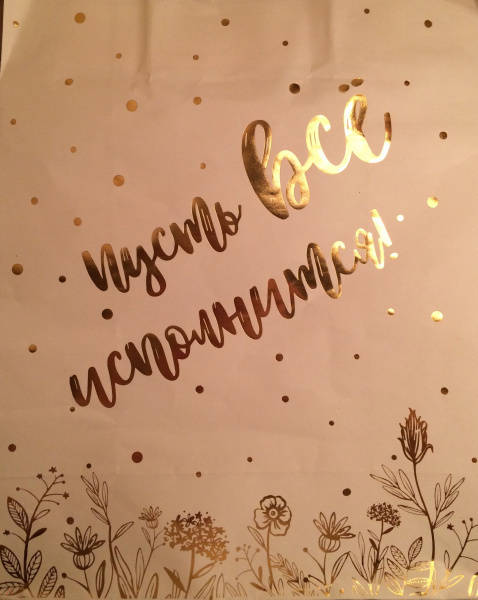 пусть всё
исполнится!